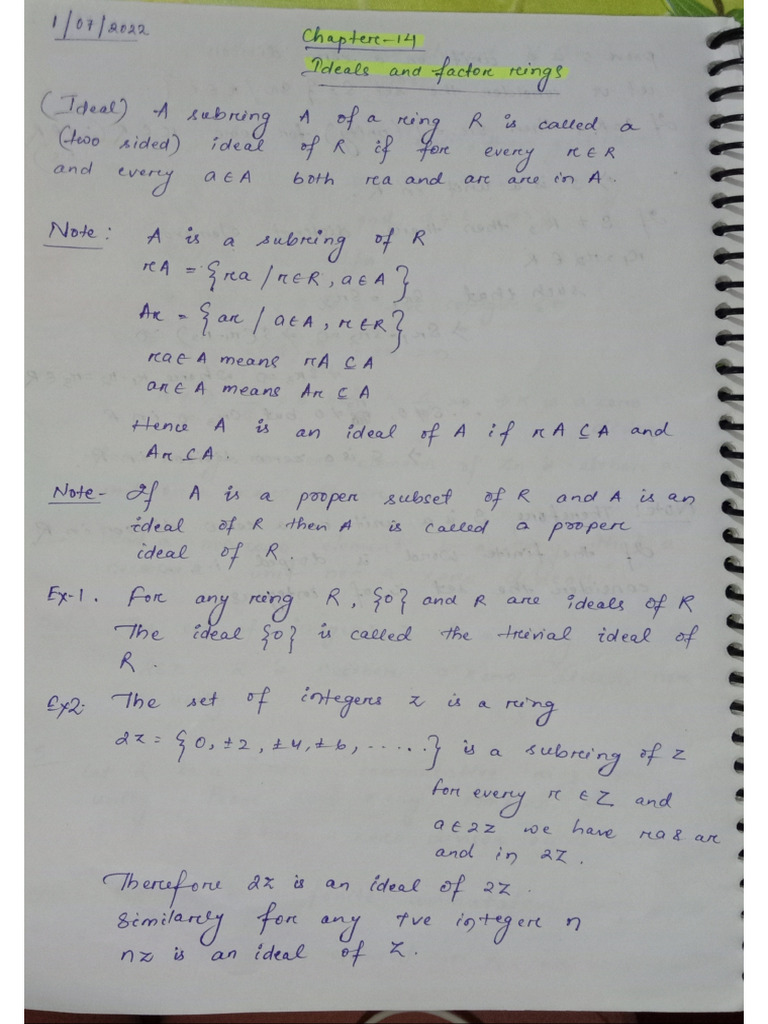 1/07/2022
Chapter-14
Ideals and factor rings
(Ideal) A subring A of a ring R is called a
(two sided) ideal of R if for every r∈R
and every a∈A both ra and ar are in A.
Note: A is a subring of R
rA = {ra / r∈R, a∈A}
Ar = {ar / a∈A, r∈R}
ra∈A means rA ⊆ A
ar∈A means Ar ⊆ A
Hence A is an ideal of A if rA ⊆ A and
Ar ⊆ A.
Note- If A is a proper subset of R and A is an
ideal of R then A is called a proper
ideal of R
Ex-1. For any ring R, {0} and R are ideals of R
The ideal {0} is called the trivial ideal of
R.
Ex2. The set of integers z is a ring
2z = {0, ±2, ±4, ±6, ......} is a subring of z
for every r ∈ Z and
a∈2z we have ra & ar
and in 2Z.
Therefore 2z is an ideal of 2z.
Similarly for any +ve integer n
nz is an ideal of Z.